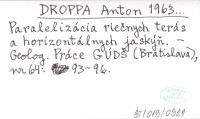 DROPPA Anton 1963...
Paralelizácia riečnych terás
a horizontálnych jaskýň. –
Geolog. Práce GÚDŠ (Bratislava),
nr 64: 93-96.